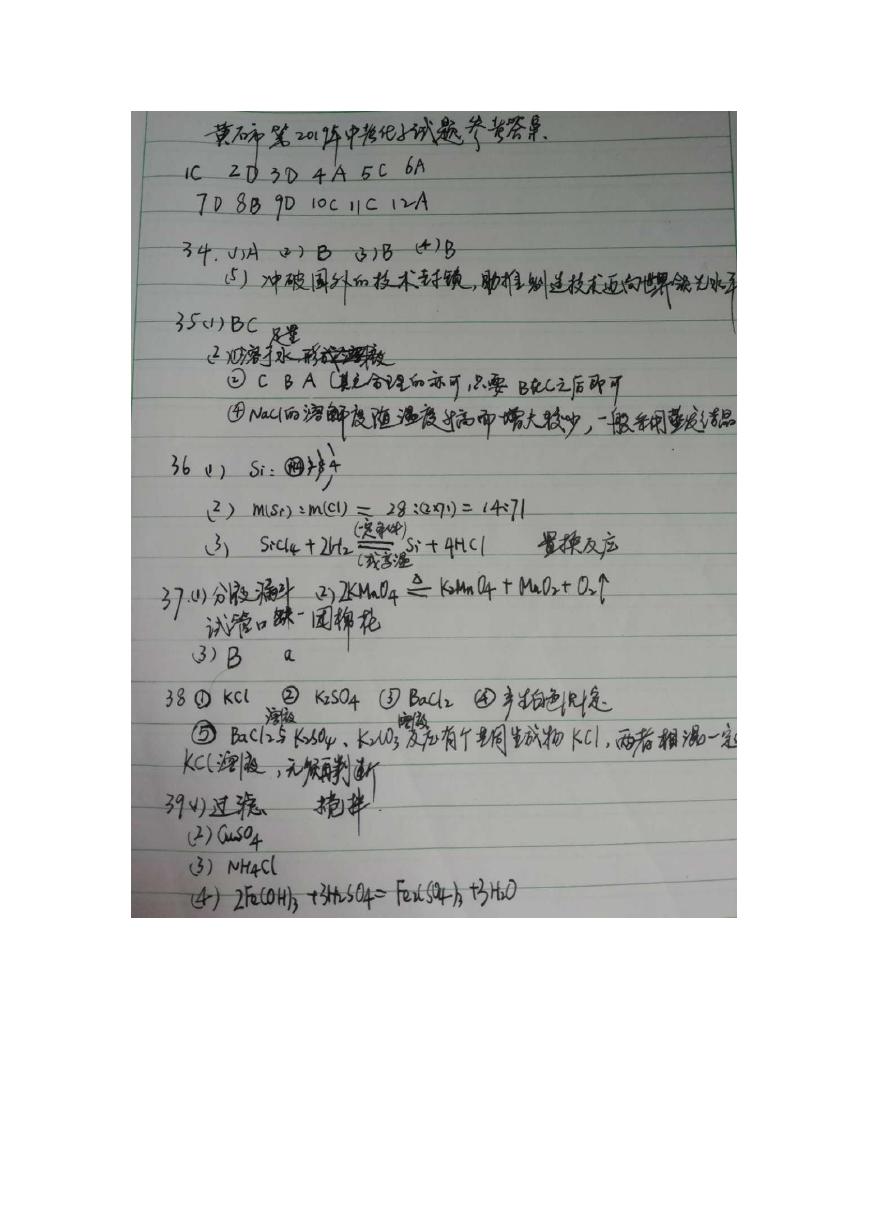 黄石市第2019年中考化学试题参考答案.
1C 2D 3D 4A 5C 6A
7D 8B 9D 10C 11C 12A
34. (1)A (2) B (3)B (4)B
(5) 冲破国外的技术封锁,助推制造技术迈向世界领先水平
35(1)BC 足量
(2)①溶于水,形成
② C B A (其它合理的亦可,只要 B在C之后即可
④NaCl的溶解度随温度升高而增大较少,一般采用蒸发结晶
36 (1) Si: 4
(2) m(Si):m(Cl) = 28:(2×71) = 14:71
(一定条件)
(3) SiCl4+2H2 = Si + 4HCl 置换反应
(或高温
37.(1)分液漏斗 (2)2KMnO4 ≜ K2MnO4 + MnO2 + O2↑
试管口缺一团棉花
(3) B a
38 ① KCl ② K2SO4 ③ BaCl2 ④ 产生白色沉淀
溶液 溶液
⑤ BaCl2与K2SO4、K2CO3反应有个共同生成物KCl,两者相混一定
KCl溶液,无须再判断
39(1)过滤 搅拌.
(2)CuSO4
(3) NH4Cl
(4) 2Fe(OH)3 +3H2SO4= Fe2(SO4)3 +3H2O